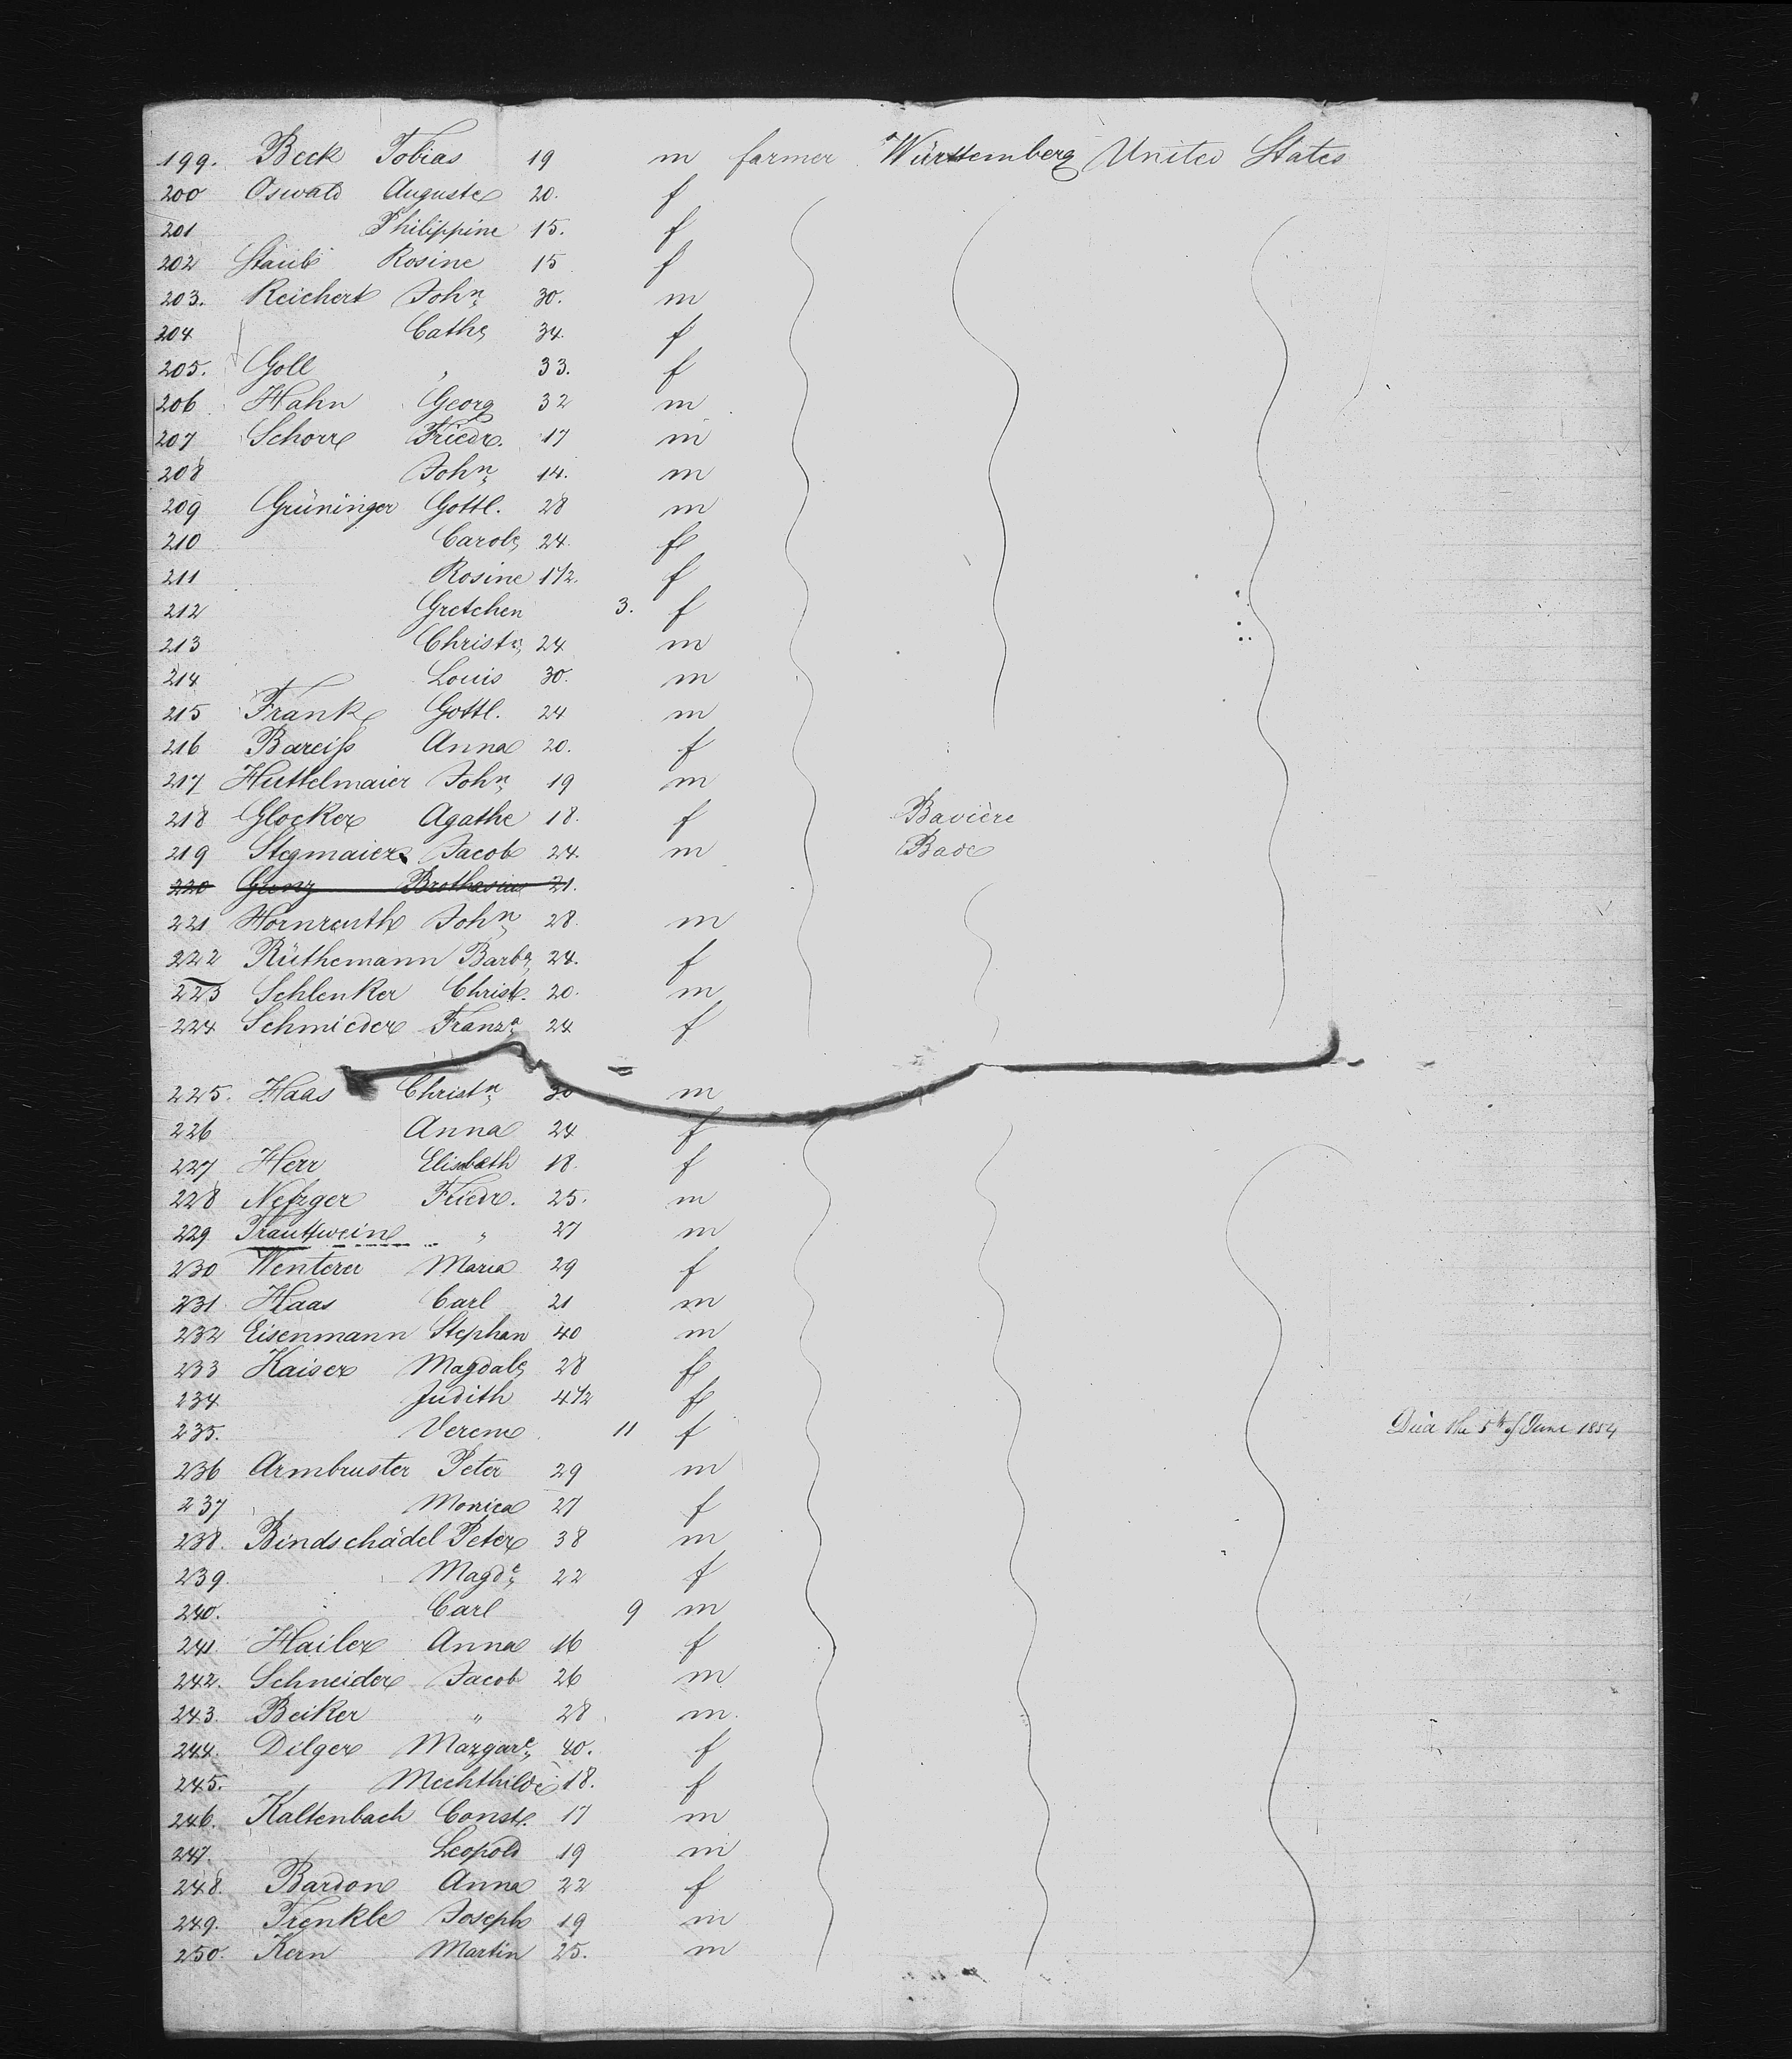 199. Beck Tobias 19 m farmer Württemberg United States
200 Oswald Auguste 20. f
201 Philippine 15. f
202 Staub Rosine 15 f
203. Reichert John 30. m
204 Cath. 34. f
205. Goll " 33. f
206 Hahn Georg 32 m
207 Schorr Friedr. 17 m
208 John 14. m
209 Grüninger Gottl. 28 m
210 Carol. 24. f
211 Rosine 1 1/2. f
212 Gretchen 3. f
213 Christn 24 m
214 Louis 30. m
215 Frank Gottl. 24 m
216 Bareiss Anna 20. f
217 Huttelmaier John 19 m
218 Glocker Agathe 18. f Bavière
219 Stegmaier Jacob 24. m Bade
220 21.
221 Hornreuth John 28. m
222 Rüthemann Barba 24. f
223 Schlenker Christ. 20. m
224 Schmieder Franza 24 f
225. Haas Christn 30 m
226 Anna 24 f
227 Herr Elisbeth 18. f
228 Nefzger Friedr. 25. m
229 Trautwein " 27 m
230 Wenterer Maria 29 f
231. Haas Carl 21 m
232 Eisenmann Stephan 40 m
233 Kaiser Magdal. 28 f
234 Judith 4 1/2 f
235. Verene 11 f Died the 5th of June 1854
236 Armbruster Peter 29 m
237 Monica 27 f
238. Bindschädel Peter 38 m
239. Magde 22 f
240. Carl 9 m
241. Hailer Anna 16 f
242. Schneider Jacob 26 m
243. Beiker " 28 m.
244. Dilger Margare 40. f
245. Mechthilde 18. f
246. Kaltenbach Const. 17 m
247. Leopold 19 m
248. Bardon Anna 22 f
249. Trenkle Joseph 19 m
250. Kern Martin 25. m